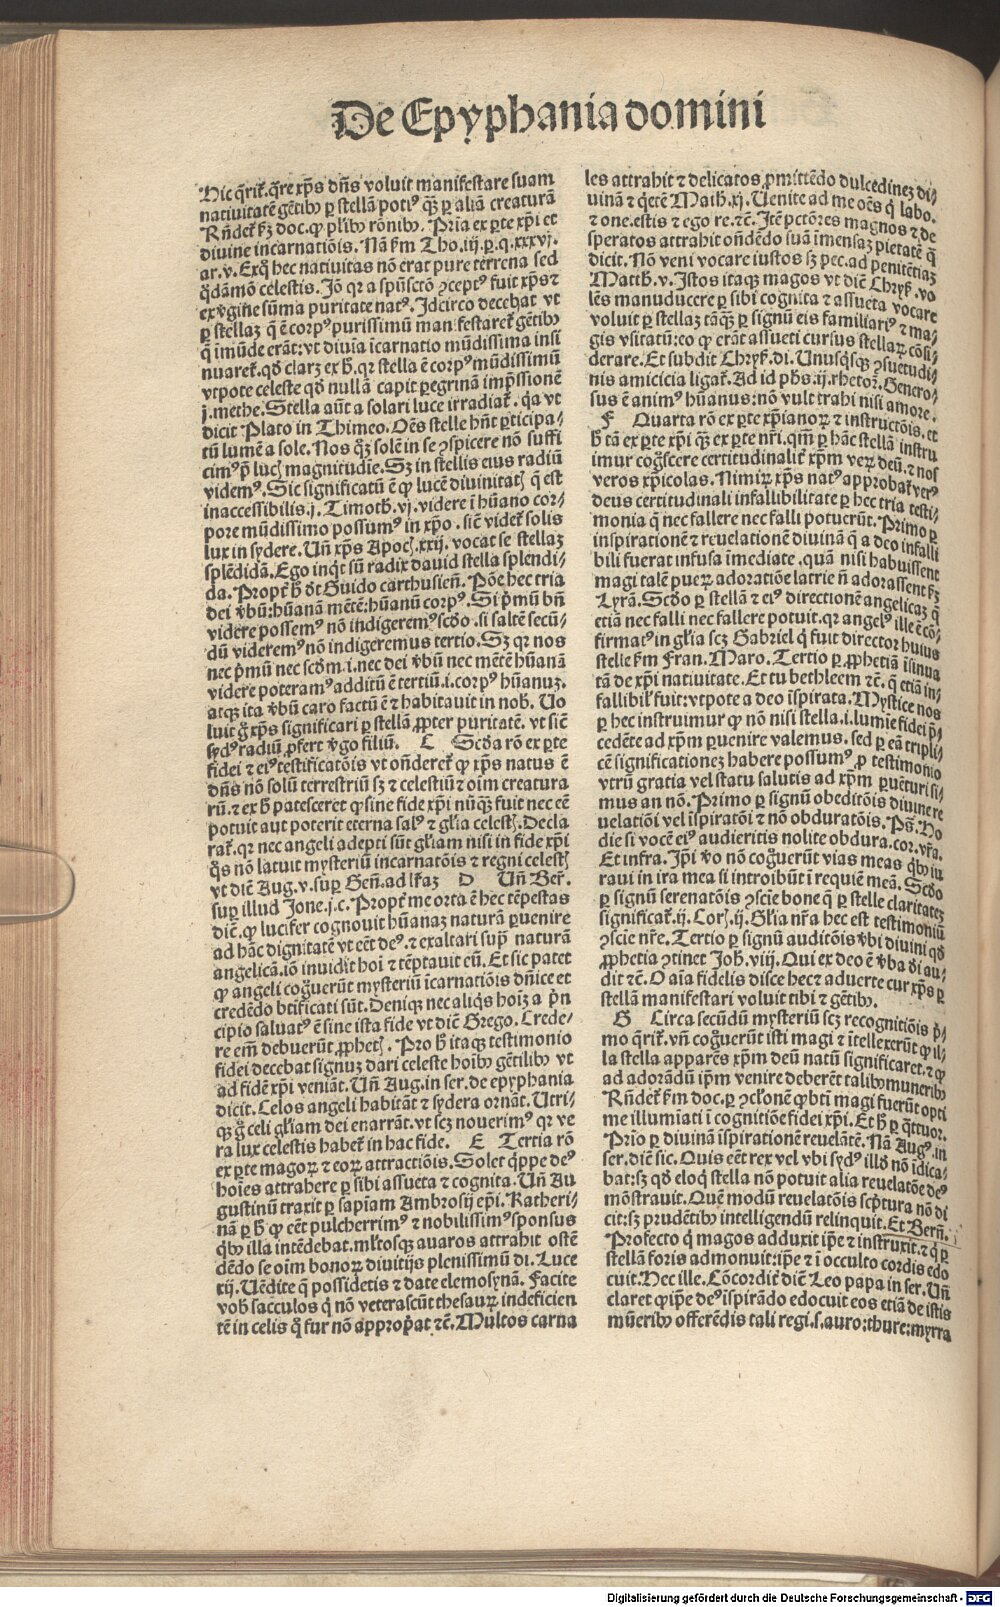 De Epyphania domini
Hic q̄rit̄. q̄re xp̄s dn̄s voluit manifestare suam
nativitatē gētib⁹ ꝑ stellā poti⁹ qȝ ꝑ aliā creaturā
Rn̄det̄ ẜm doc. ꝙ pl'ib⁹ rōnib⁹. Pria ex ꝑte xp̄i et
divine incarnatiōis. Nā ẜm Tho. iij. ꝑ. q. xxxvj.
ar. v. Exq̄ hec nativitas nō erat pure terrena sed
q̄dāmō celestis. Jō qr a spūsctō ꝯcept⁹ fuit xp̄s ⁊
ex v̄gine sūma puritate nat⁹. Jdcirco decebat vt
ꝑ stellaȝ q̄ ē corp⁹ purissimū manifestaret̄ gētib⁹
q̄ īmūde erāt: vt divīa īcarnatio mūdissima insi
nuaret̄. qd̄ clarȝ ex h̄. qr stella ē corp⁹ mūdissimū
vtpote celeste qd̄ nullā capit ꝑegrinā imp̄ssionē
j. methe. Stella aūt a solari luce irradiat̄. q̄a vt
dicit Plato in Thimeo. Oēs stelle hn̄t ꝑticipa-
tū lumē a sole. Nos q̄ȝ solē in se ꝯspicere nō suffi
cim⁹ p̄ luc̄ magnitudīe. Sȝ in stellis eius radiū
videm⁹. Sic significatū ē ꝙ lucē divinitat̄ q̄ est
inaccessibilis. j. Timoth̄. vj. videre ī hūano cor-
pore mūdissimo possum⁹ in xp̄o. sic̄ videt̄ solis
lux in sydere. Un̄ xp̄s Apoc̄. xxij. vocat se stellaȝ
splēdidā. Ego inq̄t sū radix david stella splendi-
da. Propt̄ h̄ dt̄ Guido carthusien̄. Pōe hec tria
dei v̄bū: hūanā mētē: hūanū corp⁹. Si p̄mū bn̄
videre possem⁹ nō indigerem⁹ scd̄o. si saltē secū-
dū viderem⁹ nō indigeremus tertio. Sȝ qr nos
nec p̄mū nec scd̄m. i. nec dei v̄bū nec mētē hūanā
videre poteram⁹ additū ē tertiū. i. corp⁹ hūanuȝ.
atqȝ ita v̄bū caro factū ē ⁊ habitavit in nob̄. Vo
luit g̊ xp̄s significari ꝑ stellā ꝓpter puritatē. vt sic̄
syd⁹ radiū ꝓfert v̄go filiū. C Scd̄a rō ex ꝑte
fidei ⁊ ei⁹ testificatōis vt on̄deret̄ ꝙ xp̄s natus ē
dn̄s nō solū terrestriū sȝ ⁊ celestiū ⁊ oīm creatura
rū. ⁊ ex h̄ patesceret ꝙ sine fide xp̄i nūq̄ȝ fuit nec eē
potuit aut poterit eterna sal⁹ ⁊ gl'ia celest̄. Decla
rat̄. qr nec angeli adepti sūt gl'iam nisi in fide xp̄i
q̄s nō latuit mysteriū incarnatōis ⁊ regni celest̄
vt dic̄ Aug. v. suꝑ Gen̄. ad l'raȝ D Un̄ Ber̄.
suꝑ illud Jone. j. c. Propt̄ me orta ē hec tēpestas
dic̄. ꝙ lucifer cognovit hūanaȝ naturā ꝑvenire
ad hāc dignitatē vt eēt de⁹. ⁊ exaltari sup̄ naturā
angelicā. iō invidit hoī ⁊ tēptavit eū. Et sic patet
ꝙ angeli cog̊verūt mysteriū īcarnatiōis dn̄ice et
credēdo btīficati sūt. Deniqȝ nec aliq̄s hoīȝ a p̄n
cipio salvat⁹ ē sine ista fide vt dic̄ Grego. Crede-
re em̄ debuerūt ꝓphet̄. Pro h̄ itaqȝ testimonio
fidei decebat signuȝ dari celeste hoīb⁹ gētilib⁹ vt
ad fidē xp̄i veniāt. Un̄ Aug. in ser. de epyphania
dicit. Celos angeli habitāt ⁊ sydera ornāt. Utri-
usqȝ g̊ celi gl'iam dei enarrāt. vt scȝ noverim⁹ qr ve
ra lux celestis habet̄ in hac fide. E Tertia rō
ex ꝑte magoꝝ ⁊ eoꝝ attractiōis. Solet q̄ppe de⁹
hoīes attrahere ꝑ sibi assueta ⁊ cognita. Un̄ Au
gustinū traxit ꝑ sapīam Ambrosij ep̄i. Katheri-
nā ꝑ h̄ ꝙ eēt pulcherrim⁹ ⁊ nobilissim⁹ sponsus
q̄b⁹ illa intēdebat. ml'tosqȝ avaros attrahit ostē
dēdo se oīm bonoꝝ divitijs plenissimū di. Luce
xij. Vēdite q̄ possidetis ⁊ date elemosynā. Facite
vob̄ sacculos q̄ nō veterascūt thesauꝝ indeficien
tē in celis q̊ fur nō approp̄at ⁊c̄. Multos carna
les attrahit ⁊ delicatos, ꝓmittēdo dulcedineȝ di-
vinā ⁊ q̄etē Math̄. xj. Venite ad me oēs q̄ labo.
⁊ one. estis ⁊ ego re. ⁊c̄. Jtē pctōres magnos ⁊ de
speratos attrahit on̄dēdo suā īmensaȝ pietatē q̄
dicit. Nō veni vocare iustos sȝ pec. ad penitētiaȝ
Matth̄. v. Jstos itaqȝ magos vt dic̄ Chrys̄. vo
lēs manuducere ꝑ sibi cognita ⁊ assueta vocare
voluit ꝑ stellaȝ tāq̄ȝ ꝑ signū eis familiari⁹ ⁊ ma-
gis vsitatū: eo ꝙ erāt assueti cursus stellaꝝ cōsi-
derare. Et subdit Chrys̄. di. Unusq̄sqȝ ꝯsuetudi-
nis amicicia ligat̄. Ad id ph̄s. ij. rhetoꝝ. Genero-
sus ē anim⁹ hūanus: nō vult trahi nisi amore.
F Quarta rō ex ꝑte xp̄ianoꝝ ⁊ instructōis. et
h̄ tā ex ꝑte xp̄i q̄ȝ ex ꝑte nr̄i. qm̄ ꝑ hāc stellā instru
imur cog̊scere certitudinalit̄ xp̄m veꝝ deū. ⁊ nos
veros xp̄icolas. Nimirꝝ xp̄s nat⁹ approbat̄ ver⁹
deus certitudinali infallibilitate ꝑ hec tria testi-
monia q̄ nec fallere nec falli potuerūt. Primo ꝑ
inspirationē ⁊ revelationē divinā q̄ a deo infalli
bili fuerat infusa īmediate. quā nisi habuissent
magi talē pueꝝ adoratiōe latrie n̄ adorassent ẜm
Lyrā. Scd̄o ꝑ stellā ⁊ ei⁹ directionē angelicaȝ q̄
etiā nec falli nec fallere potuit. qr angel⁹ ille ē cō-
firmat⁹ in gl'ia scȝ Gabriel q̄ fuit director huius
stelle ẜm Fran. Maro. Tertio ꝑ ꝓphetiā īsinua
tā de xp̄i nativitate. Et tu bethleem ⁊c̄. q̄ etiā in-
fallibil' fuit: vtpote a deo īspirata. Mystice nos
ꝑ hec instruimur ꝙ nō nisi stella. i. lumīe fidei p̄-
cedēte ad xp̄m ꝑvenire valemus. sed ꝑ eā tripli-
cē significationeȝ habere possum⁹ ꝓ testimonio
vtrū gratia vel statu salutis ad xp̄m ꝑvēturi si-
mus an nō. Primo ꝑ signū obeditōis divine re
velatiōi vel īspiratōi ⁊ nō obduratōis. Ps̄. Ho
die si vocē ei⁹ audieritis nolite obdura. cor. vr̄a.
Et infra. Jp̄i v̊o nō cog̊verūt vias meas q̄b⁹ iu
ravi in ira mea si introibūt ī requiē meā. Scd̄o
ꝑ signū serenatōis ꝯscie bone q̄ ꝑ stelle claritateȝ
significat̄. ij. Cor̄. ij. Gl'ia nr̄a hec est testimoniū
ꝯscie nr̄e. Tertio ꝑ signū auditōis v̄bi divini qd̄
ꝓphetia ꝯtinet Joh̄. viij. Qui ex deo ē v̄ba d̄i au-
dit ⁊c̄. O aīa fidelis disce hec ⁊ adverte cur xp̄s ꝑ
stellā manifestari voluit tibi ⁊ gētib⁹.
G Circa secūdū mysteriū scȝ recognitiōis p̄-
mo q̄rit̄. vn̄ cog̊verūt isti magi ⁊ ītellexerūt ꝙ il-
la stella apparēs xp̄m deū natū significaret. ⁊ ꝙ
ad adorādū ip̄m venire deberēt talib⁹ munerib⁹
Rn̄det̄ ẜm doc. ꝑ ꝯcl'onē ꝙ bti magi fuerūt opti
me illumīati ī cognitiōe fidei xp̄i. Et h̄ ꝑ q̄ttuor.
Prīo ꝑ divinā īspirationē revelātē. Nā Aug⁹. in
ser. dic̄ sic. Quis eēt rex vel vbi syd⁹ illd̄ nō īdica-
bat: sȝ qd̄ eloq̄ stella nō potuit alia revelatōe de⁹
mōstravit. Quē modū revelatōis sc̄ptura nō di
cit: sȝ prudētib⁹ intelligendū relinquit. Et Bern̄.
Profecto q̄ magos adduxit ip̄e ⁊ instruxit. ⁊ q̄ ꝑ
stellā foris admonuit: ip̄e ⁊ ī occulto cordis edo
cuit. Hec ille. Cōcordit̄ dic̄ Leo papa in ser. Un̄
claret ꝙ ip̄e de⁹ īspirādo edocuit eos etiā de istis
mūerib⁹ offerēdis tali regi. s. auro: thure: myrra
Digitalisierung gefördert durch die Deutsche Forschungsgemeinschaft - DFG